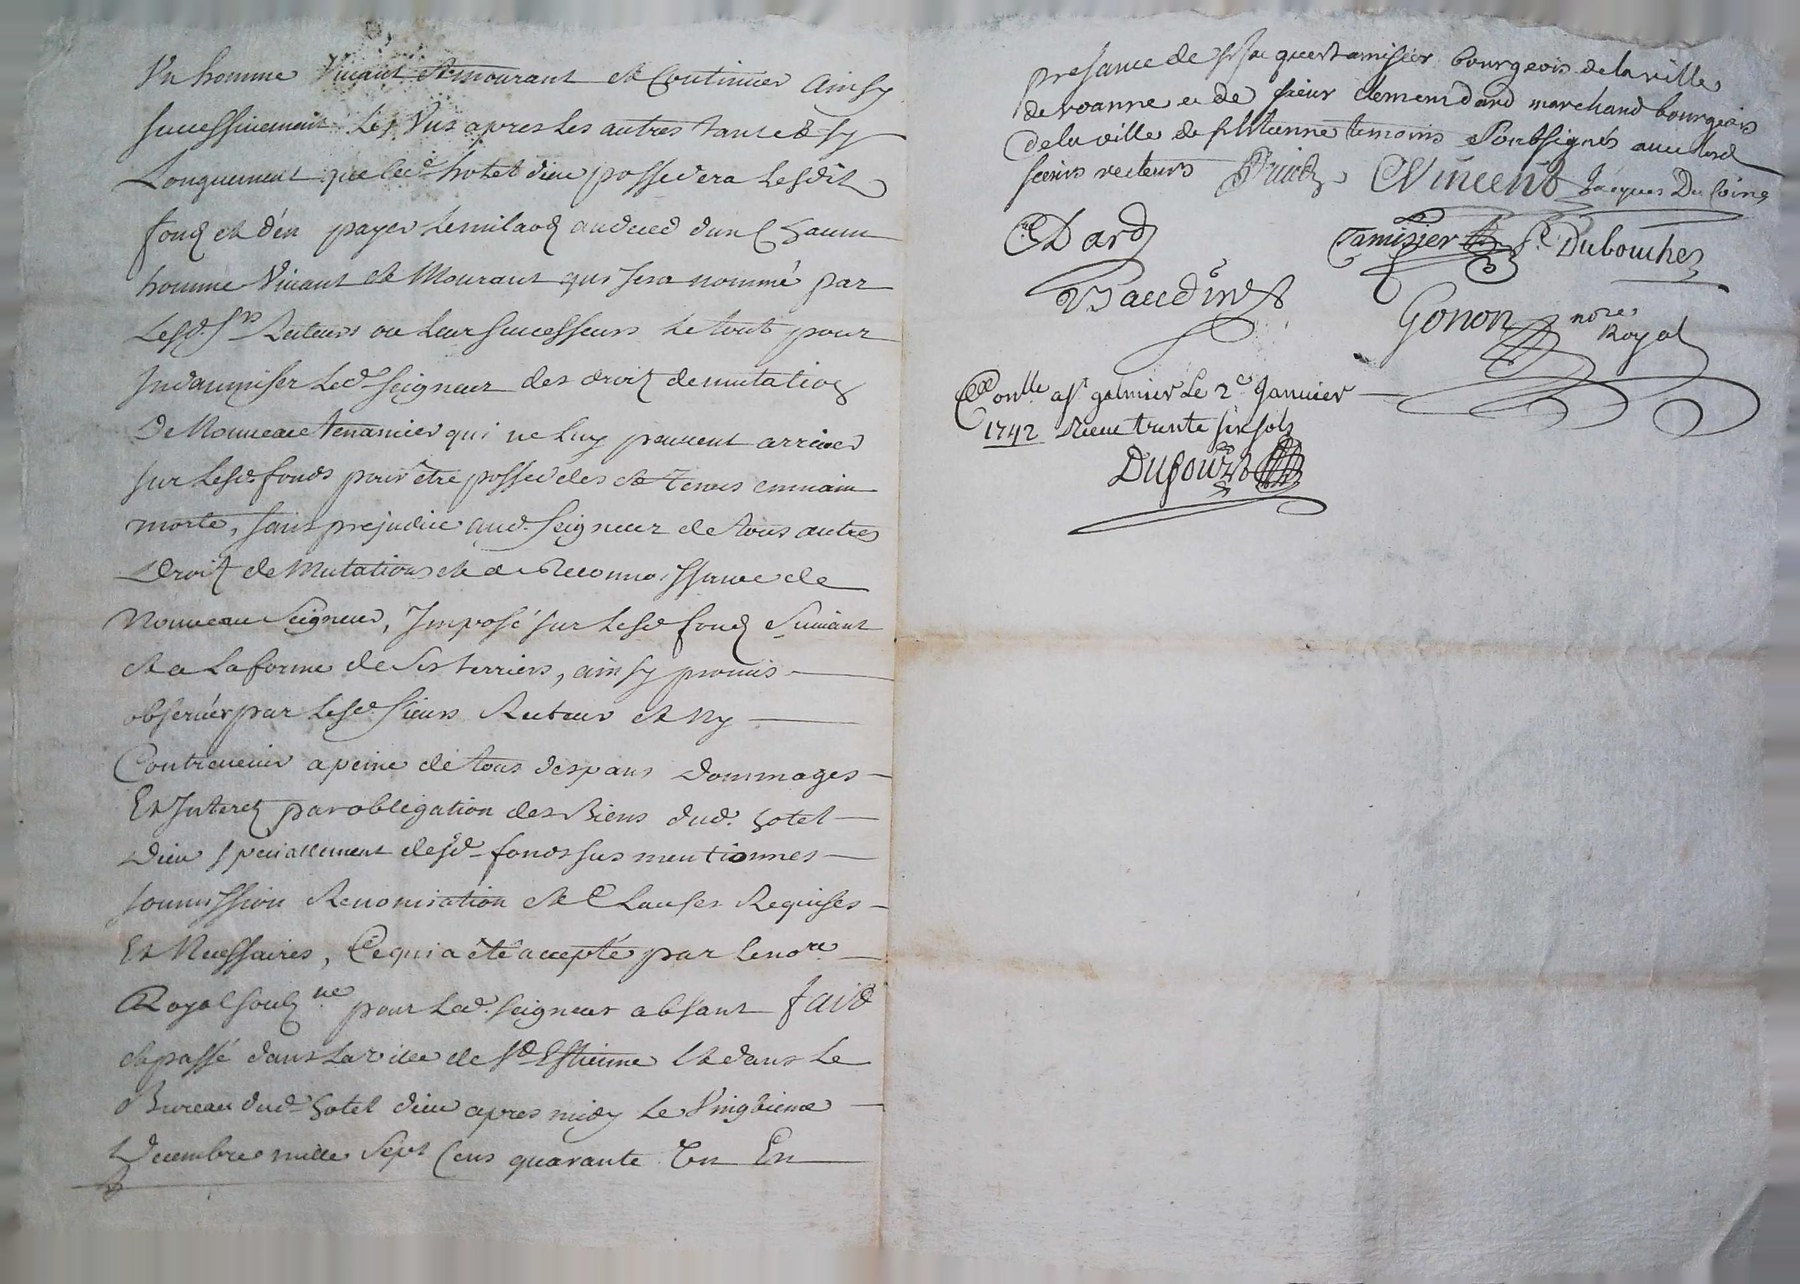 Un homme Vivant et mourant et Continuer ainsy
successivement les Uns apres les autres tant et sy
Longuement que led. hotel dieu possedera lesdits
fonds et d'en payer le milaod audeced d'un Chacun
homme Vivant et Mourant qui sera nommé par
Lesd. Srs Recteurs ou leur successeurs le tout pour
Indamniser led. seigneur des droits de mutation
De Nouveau tenancier qui ne luy peuvent arriver
sur lesd. fonds pour être possedées et tenus en main
morte, sans prejudice aud. seigneur de tous autres
Droits de Mutations et de Reconnoissance de
Nouveau Seigneur, Imposé sur lesd. fonds Suivant
et a La forme de ses terriers, ainsy promis
observér par lesd. sieurs Recteurs et Ny
Contrevenir a peine de tous despans Dommages
Et Interets par obligation des Biens dud. hotel
Dieu specialement desd. fonds sus mentionnes
soumission Renonciation et Clauses Requises
Et Necessaires, Ce qui a été accepté par le nore.
Royal soubzne pour led. seigneur absant fait
et passé dans la ville de St Estienne et dans le
Bureau dud. hotel dieu apres midy le Vingtieme
Decembre mille sept Cens quarante Un En
presance de sr Jacques tamisier bourgeois de la ville
de roanne et de sieur clement dard marchand bourgeois
de la ville de st Etienne temoins soubsignés avec lesd.
sieurs recteurs CVincent Jacques Du Coing
CDard Tamisier Dubouchet
Baudin
Gonon nore Royal
Conlle a st galmier le 2e Janvier
1742 Receu trente six sols
Dufour